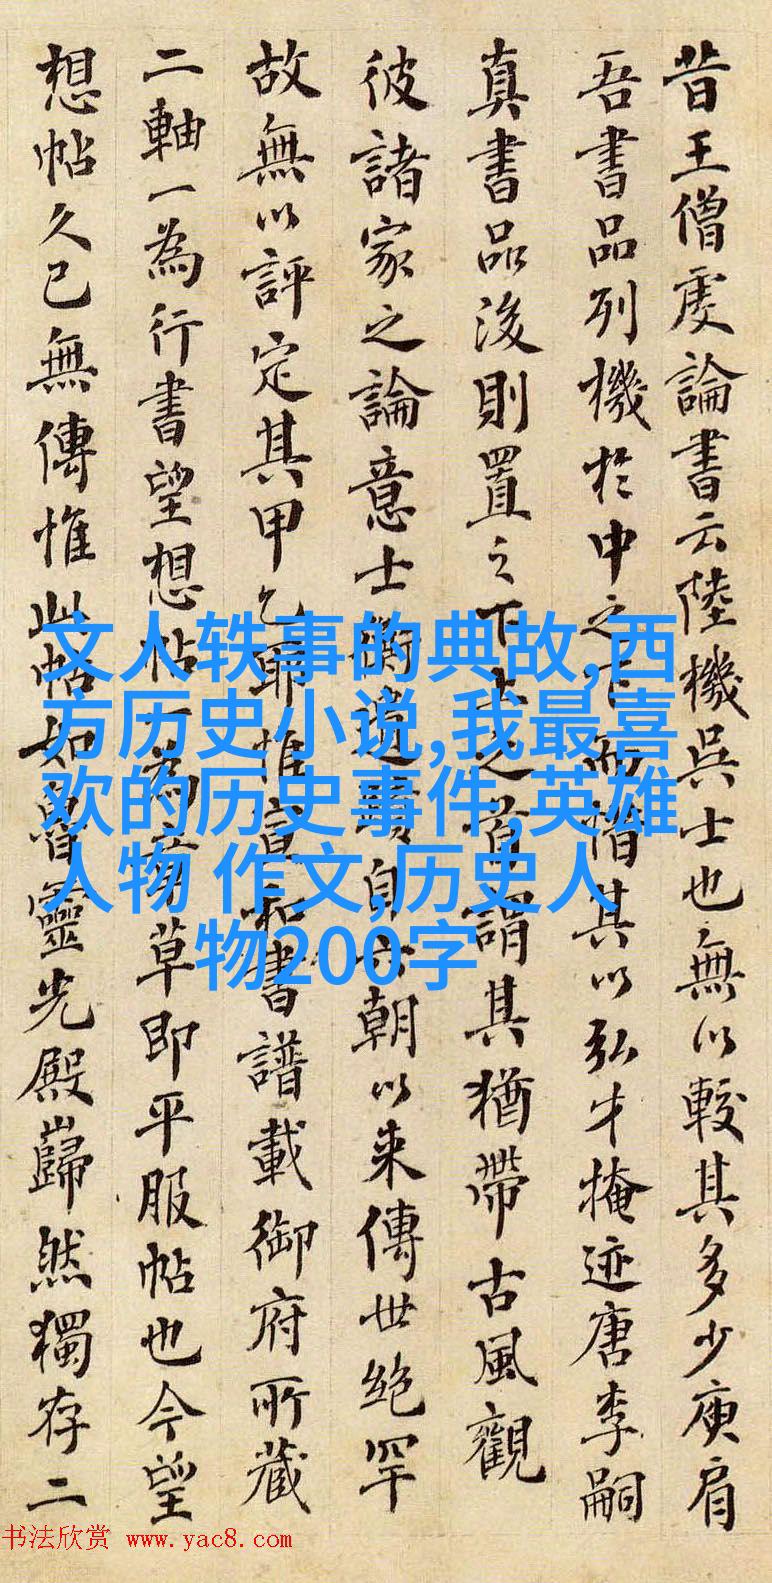 昔王僧虔論書云陸機吳士也無以較其多少庾肩
吾書品列機於中之下而惜其以弘才掩迹唐李嗣
真書品後則置之下上之首謂其猶帶古風觀
彼諸家之論意士衡遺蹟自六朝以来傳世絕罕
故無以評定其甲乙耶惟宣和書譜載御府所藏
二軸一為行書望想帖一為章草即平服帖也今望
想帖久已無傳惟此帖如魯靈光殿巋然獨存二
文人轶事的典故,西
方历史小说,我最喜
欢的历史事件,英雄
人物 作文,历史人
物200字
书法欣赏 www.yac8.com